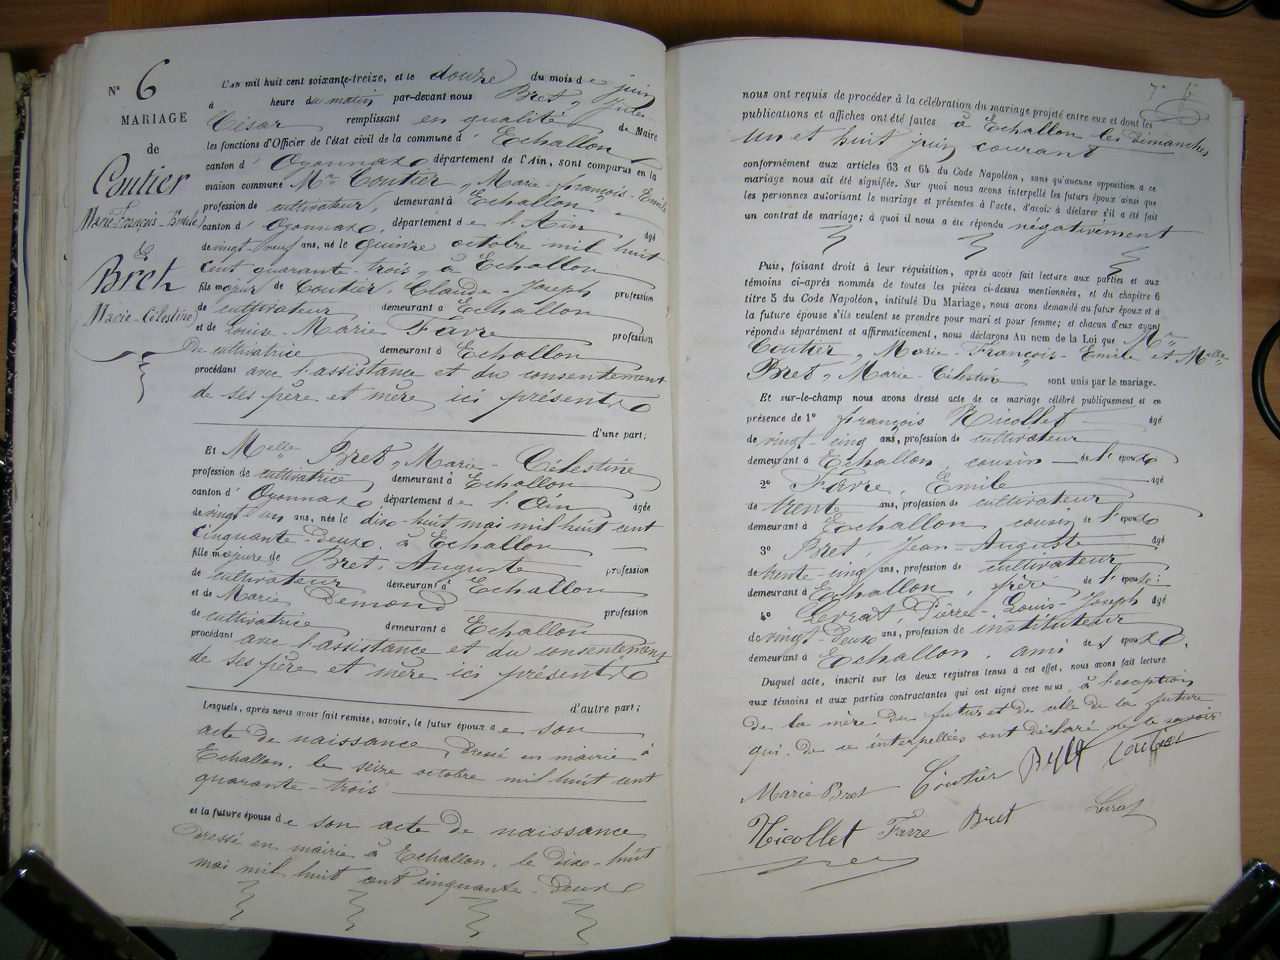 N° 6
MARIAGE
de
Coutier
Marie-François-Emile
&
Bret
Marie-Célestine
L'an mil huit cent soixante-treize, et le douze du mois de juin
à heure du matin par-devant nous Bret, Jules
César remplissant en qualité de Maire
les fonctions d'Officier de l'état civil de la commune d' Echallon
canton d' Oyonnax département de l'Ain, sont comparus en la
maison commune Mr Coutier, Marie-François-Emile
profession de cultivateur, demeurant à Echallon
canton d' Oyonnax, département de l'Ain âgé
de vingt-neuf ans, né le quinze octobre mil huit
cent quarante-trois, à Echallon
fils majeur de Coutier, Claude-Joseph profession
de cultivateur demeurant à Echallon
et de Louise-Marie Favre profession
de cultivatrice demeurant à Echallon
procédant avec l'assistance et du consentement
de ses père et mère ici présents
d'une part;
Et Melle Bret, Marie-Célestine
profession de cultivatrice demeurant à Echallon
canton d' Oyonnax département de l'Ain âgée
de vingt-un ans, née le dix-huit mai mil huit cent
cinquante-deux, à Echallon
fille majeure de Bret, Auguste profession
de cultivateur demeurant à Echallon
et de Marie Demond profession
de cultivatrice demeurant à Echallon
procédant avec l'assistance et du consentement
de ses père et mère ici présents
d'autre part;
Lesquels, après nous avoir fait remise, savoir, le futur époux de son
acte de naissance, dressé en mairie à
Echallon, le seize octobre mil huit cent
quarante-trois
et la future épouse de son acte de naissance
dressé en mairie à Echallon, le dix-huit
mai mil huit cent cinquante-deux
nous ont requis de procéder à la célébration du mariage projeté entre eux et dont les
publications et affiches ont été faites à Echallon les dimanches
un et huit juin courant
conformément aux articles 63 et 64 du Code Napoléon, sans qu'aucune opposition a ce
mariage nous ait été signifiée. Sur quoi nous avons interpellé les futurs époux ainsi que
les personnes autorisant le mariage et présentes à l'acte, d'avoir à déclarer s'il a été fait
un contrat de mariage; à quoi il nous a été répondu négativement
Puis, faisant droit à leur réquisition, après avoir fait lecture aux parties et aux
témoins ci-après nommés de toutes les pièces ci-dessus mentionnées, et du chapitre 6
titre 5 du Code Napoléon, intitulé Du Mariage, nous avons demandé au futur époux et à
la future épouse s'ils veulent se prendre pour mari et pour femme; et chacun d'eux ayant
répondu séparément et affirmativement, nous déclarons Au nom de la Loi que Mr
Coutier, Marie-François-Emile et Melle
Bret, Marie-Célestine sont unis par le mariage.
Et sur-le-champ nous avons dressé acte de ce mariage célébré publiquement et en
présence de 1° François Nicollet âgé
de vingt-cinq ans, profession de cultivateur
demeurant à Echallon, cousin de l'époux
2° Favre, Emile âgé
de trente ans, profession de cultivateur
demeurant à Echallon cousin de l'époux
3° Bret, Jean-Auguste âgé
de trente-cinq ans, profession de cultivateur
demeurant à Echallon, frère de l'épouse:
4° Levrat, Pierre-Louis-Joseph âgé
de vingt-deux ans, profession de instituteur
demeurant à Echallon, ami de l'époux.
Duquel acte, inscrit sur les deux registres tenus à cet effet, nous avons fait lecture
aux témoins et aux parties contractantes qui ont signé avec nous, à l'exception
de la mère du futur et de celle de la future
qui, de ce interpellées ont déclaré ne le savoir
Marie Bret Coutier Coutier
Nicollet Favre Bret Levrat